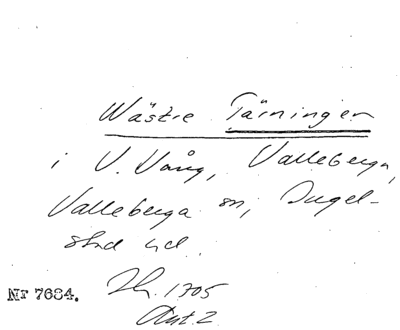 Wästre Tärningen
i V. Vång, Valleberga,
Valleberga sn, Ingel-
stad hd.
Nr 7684. Jb. 1705
Ant. 2